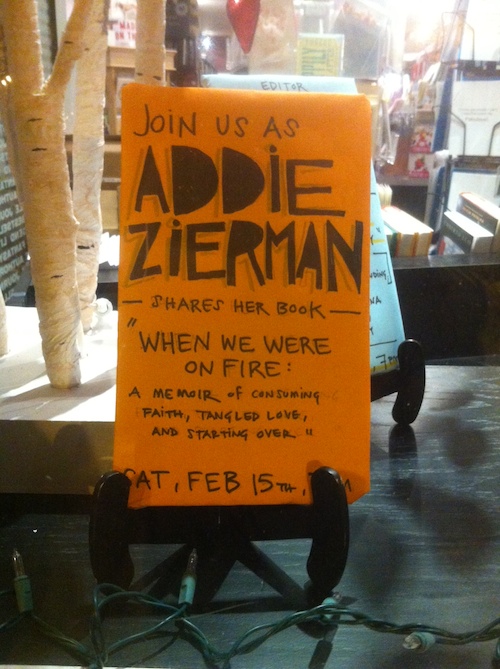 EDITOR
JOIN US AS
ADDiE
ZiERMAN
— SHARES HER BOOK —
"WHEN WE WERE
ON FIRE:
A MEMOIR of CONSUMING
FAITH, TANGLED LOVE,
AND STARTING OVER"
SAT, FEB 15TH,